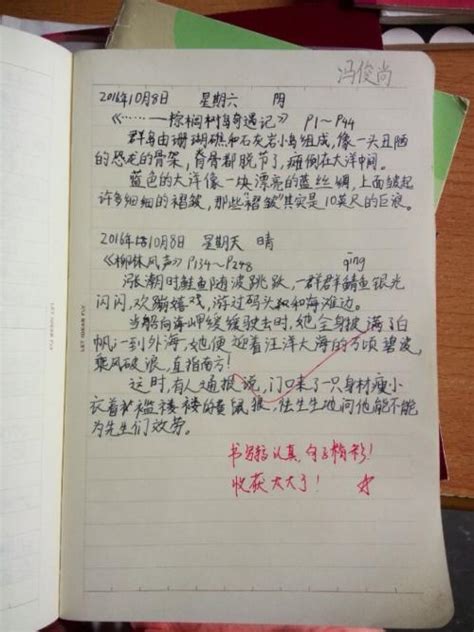 冯俊尚
2016年10月8日 星期六 阴
《……——棕榈树岛奇遇记》 P1~P44
群岛由珊瑚礁和石灰岩小岛组成,像一头丑陋
的恐龙的骨架,脊骨都脱节了,瘫倒在大洋中间。
蓝色的大洋像一块漂亮的蓝丝绸,上面皱起
许多细细的褶皱,那些"褶皱"其实是10英尺的巨浪。
2016年10月8日 星期天 晴
《柳林风声》 P134~P248 qing
涨潮时鲑鱼随波跳跃,一群群鲭鱼银光
闪闪,欢蹦嬉戏,游过码头和海滩边。
当船向海岬缓缓驶去时,她全身披满了白
帆;一到外海,她便迎着汪洋大海的万顷碧波,
乘风破浪,直指南方!
这时,有人通报说,门口来了一只身材瘦小
衣着褴褛的黄鼠狼,怯生生地问他能不能
为先生们效劳。
书写认真,句子精彩!
收获太大了!
LET DIARY FLY